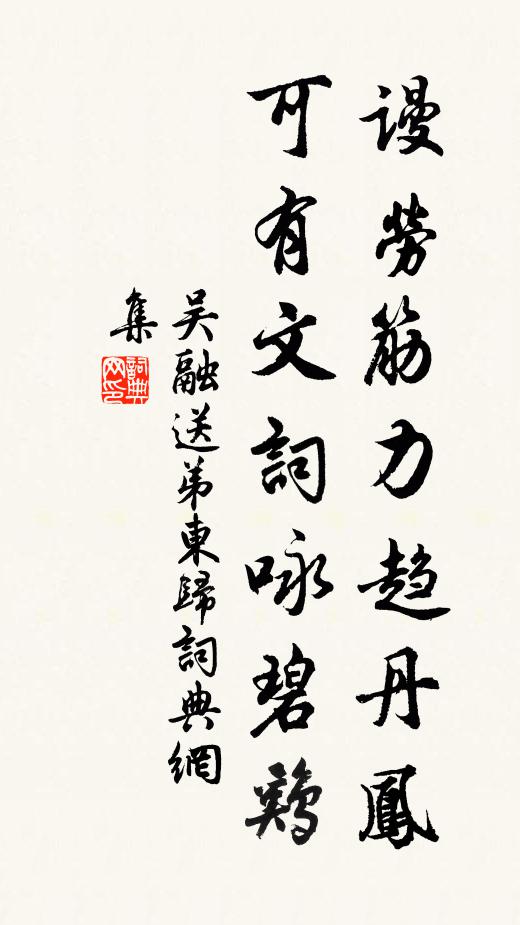 謾勞筋力趨丹鳳
可有文詞咏碧鷄
吴融送弟東歸詞典網
集
詞典
网印